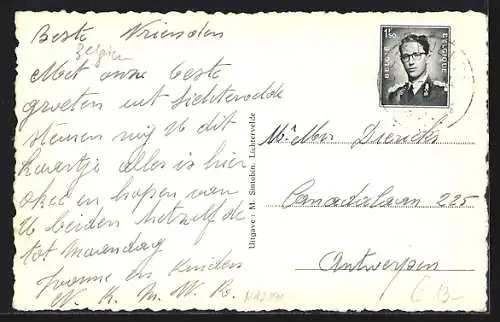 Beste Vrienden
Belgien
Met onze beste
groeten uit Lichtervelde
sturen wij U dit
kaartje alles is hier
oké en hopen van
U beiden hetzelfde
tot Maandag
Yvonne en Kinders
N. K. M. W. R.
Uitgave : M. Simobin. Lichtervelde
1F50
BELGIE BELGIQUE
Mr Mme Diericks
Canadalaan 225
Antwerpen